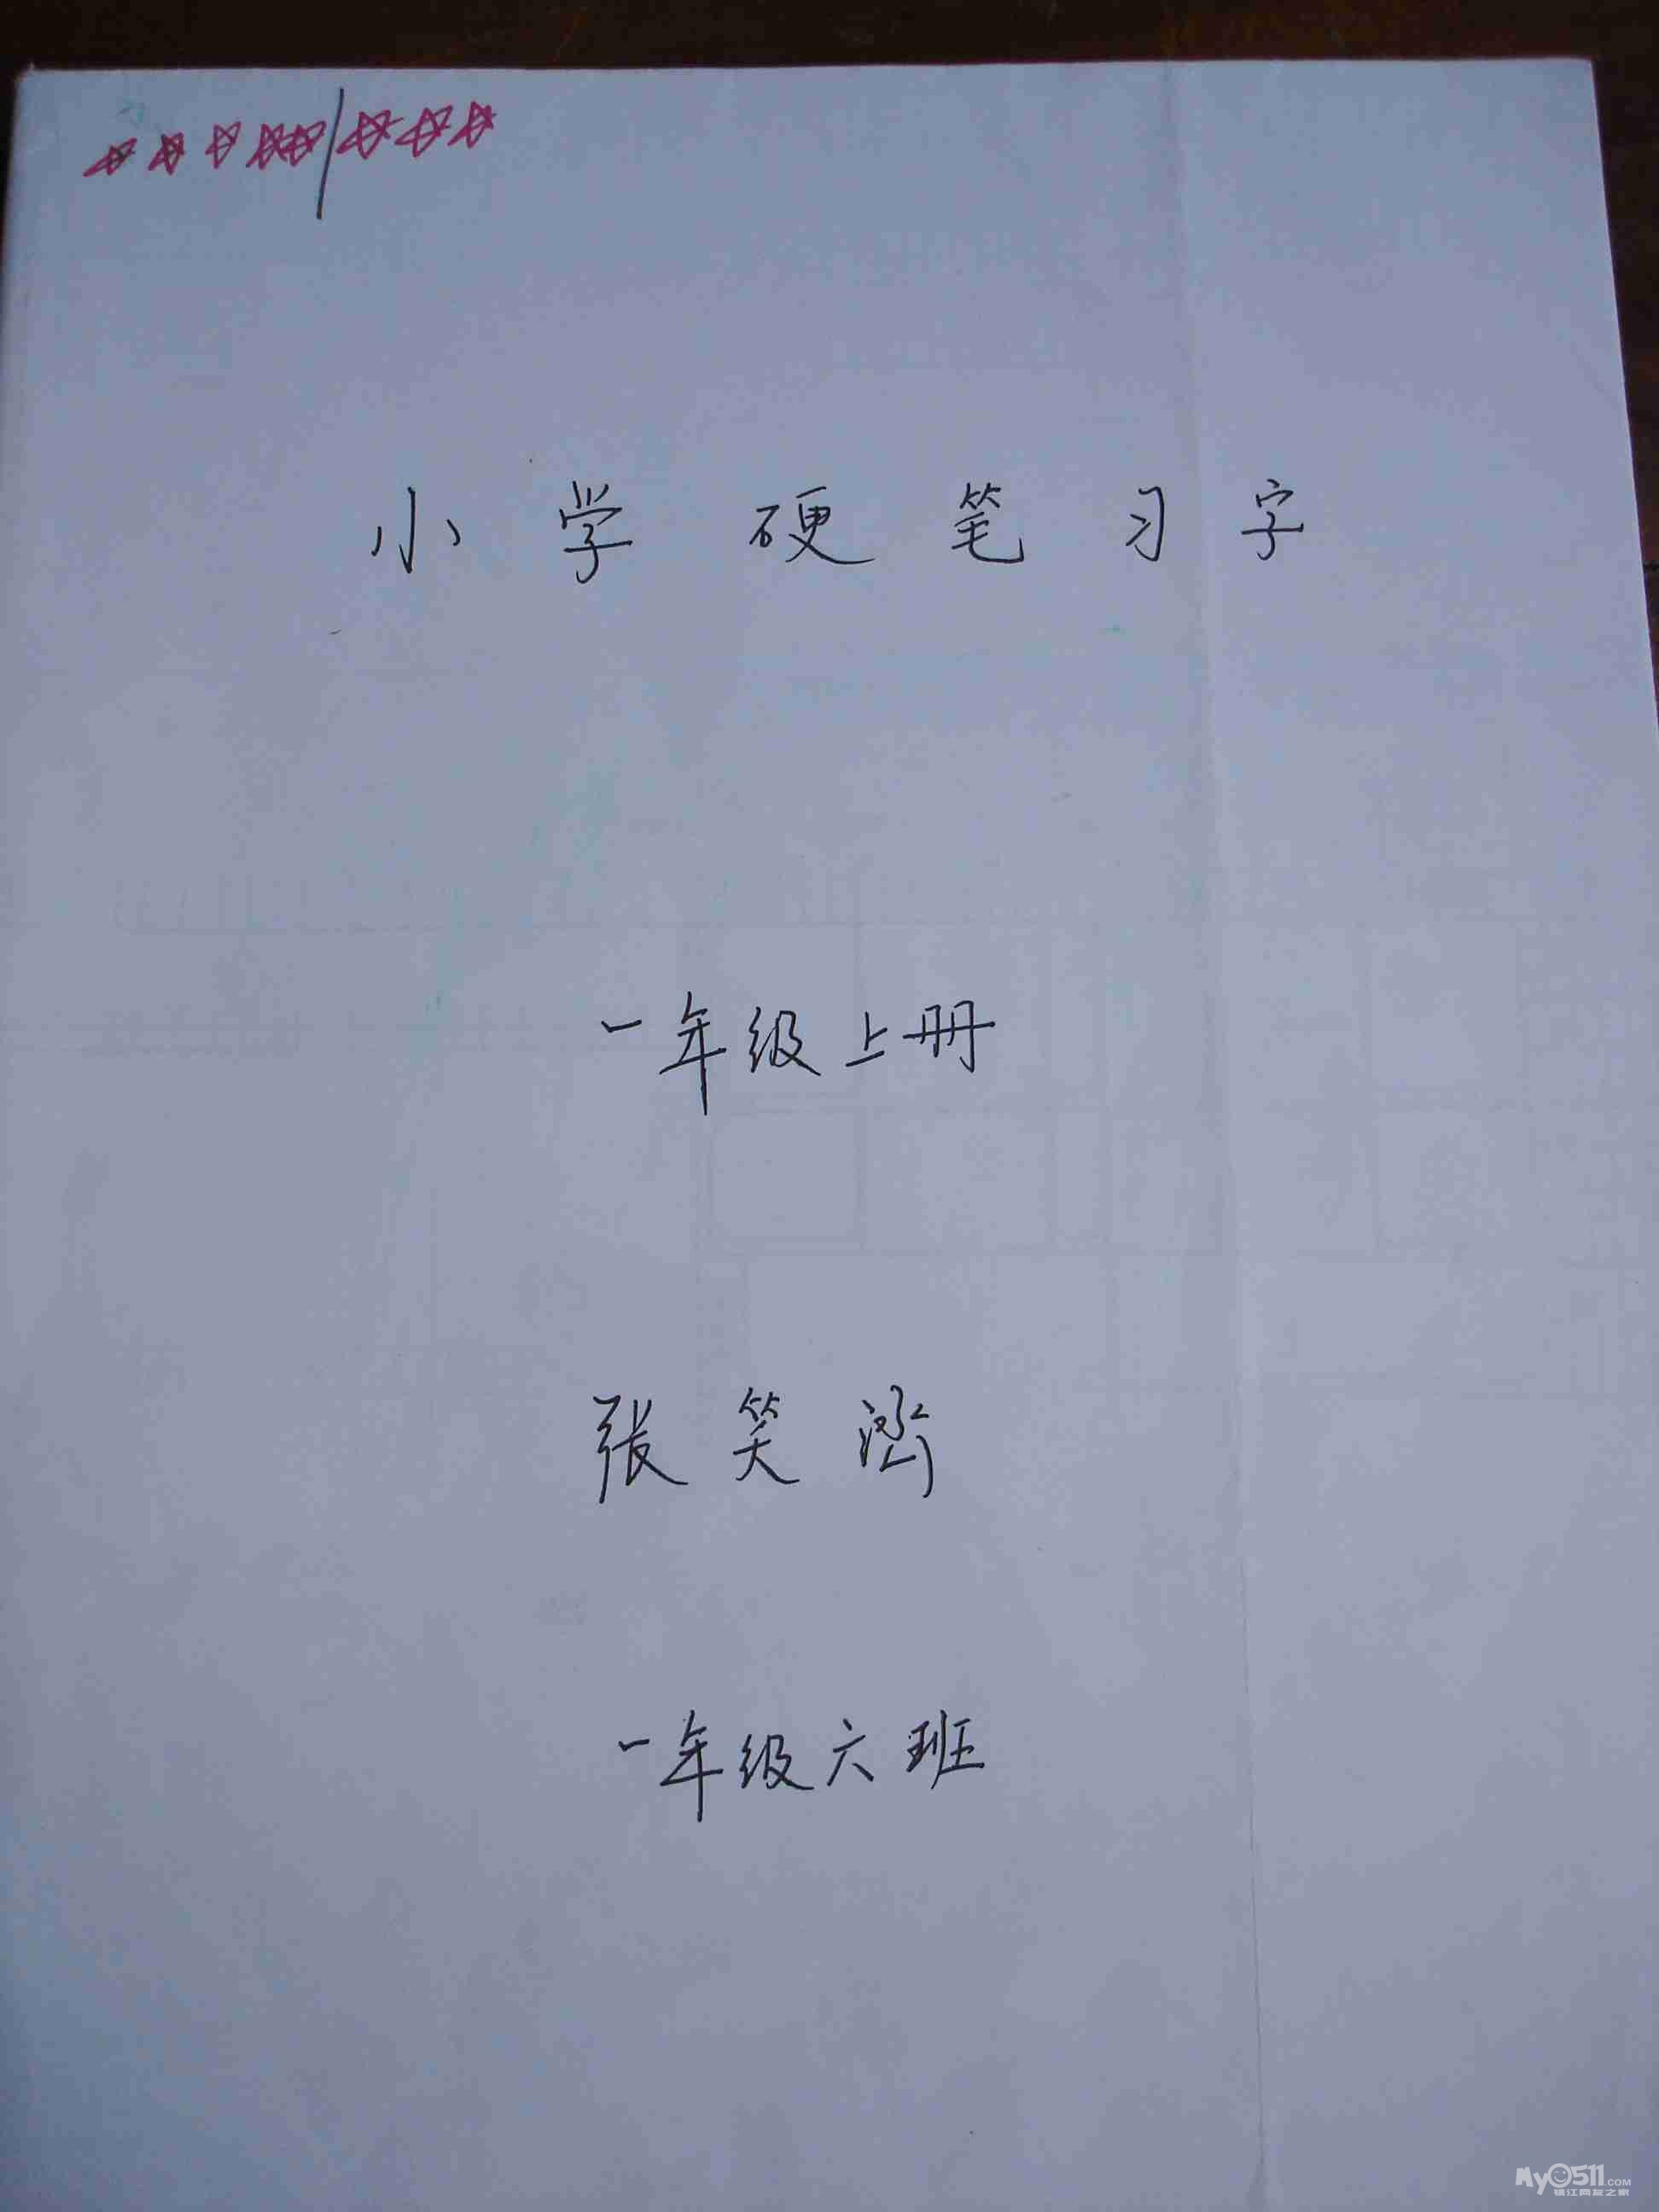 小学硬笔习字
一年级上册
张笑涵
一年级六班
My0511.COM
镇江网友之家